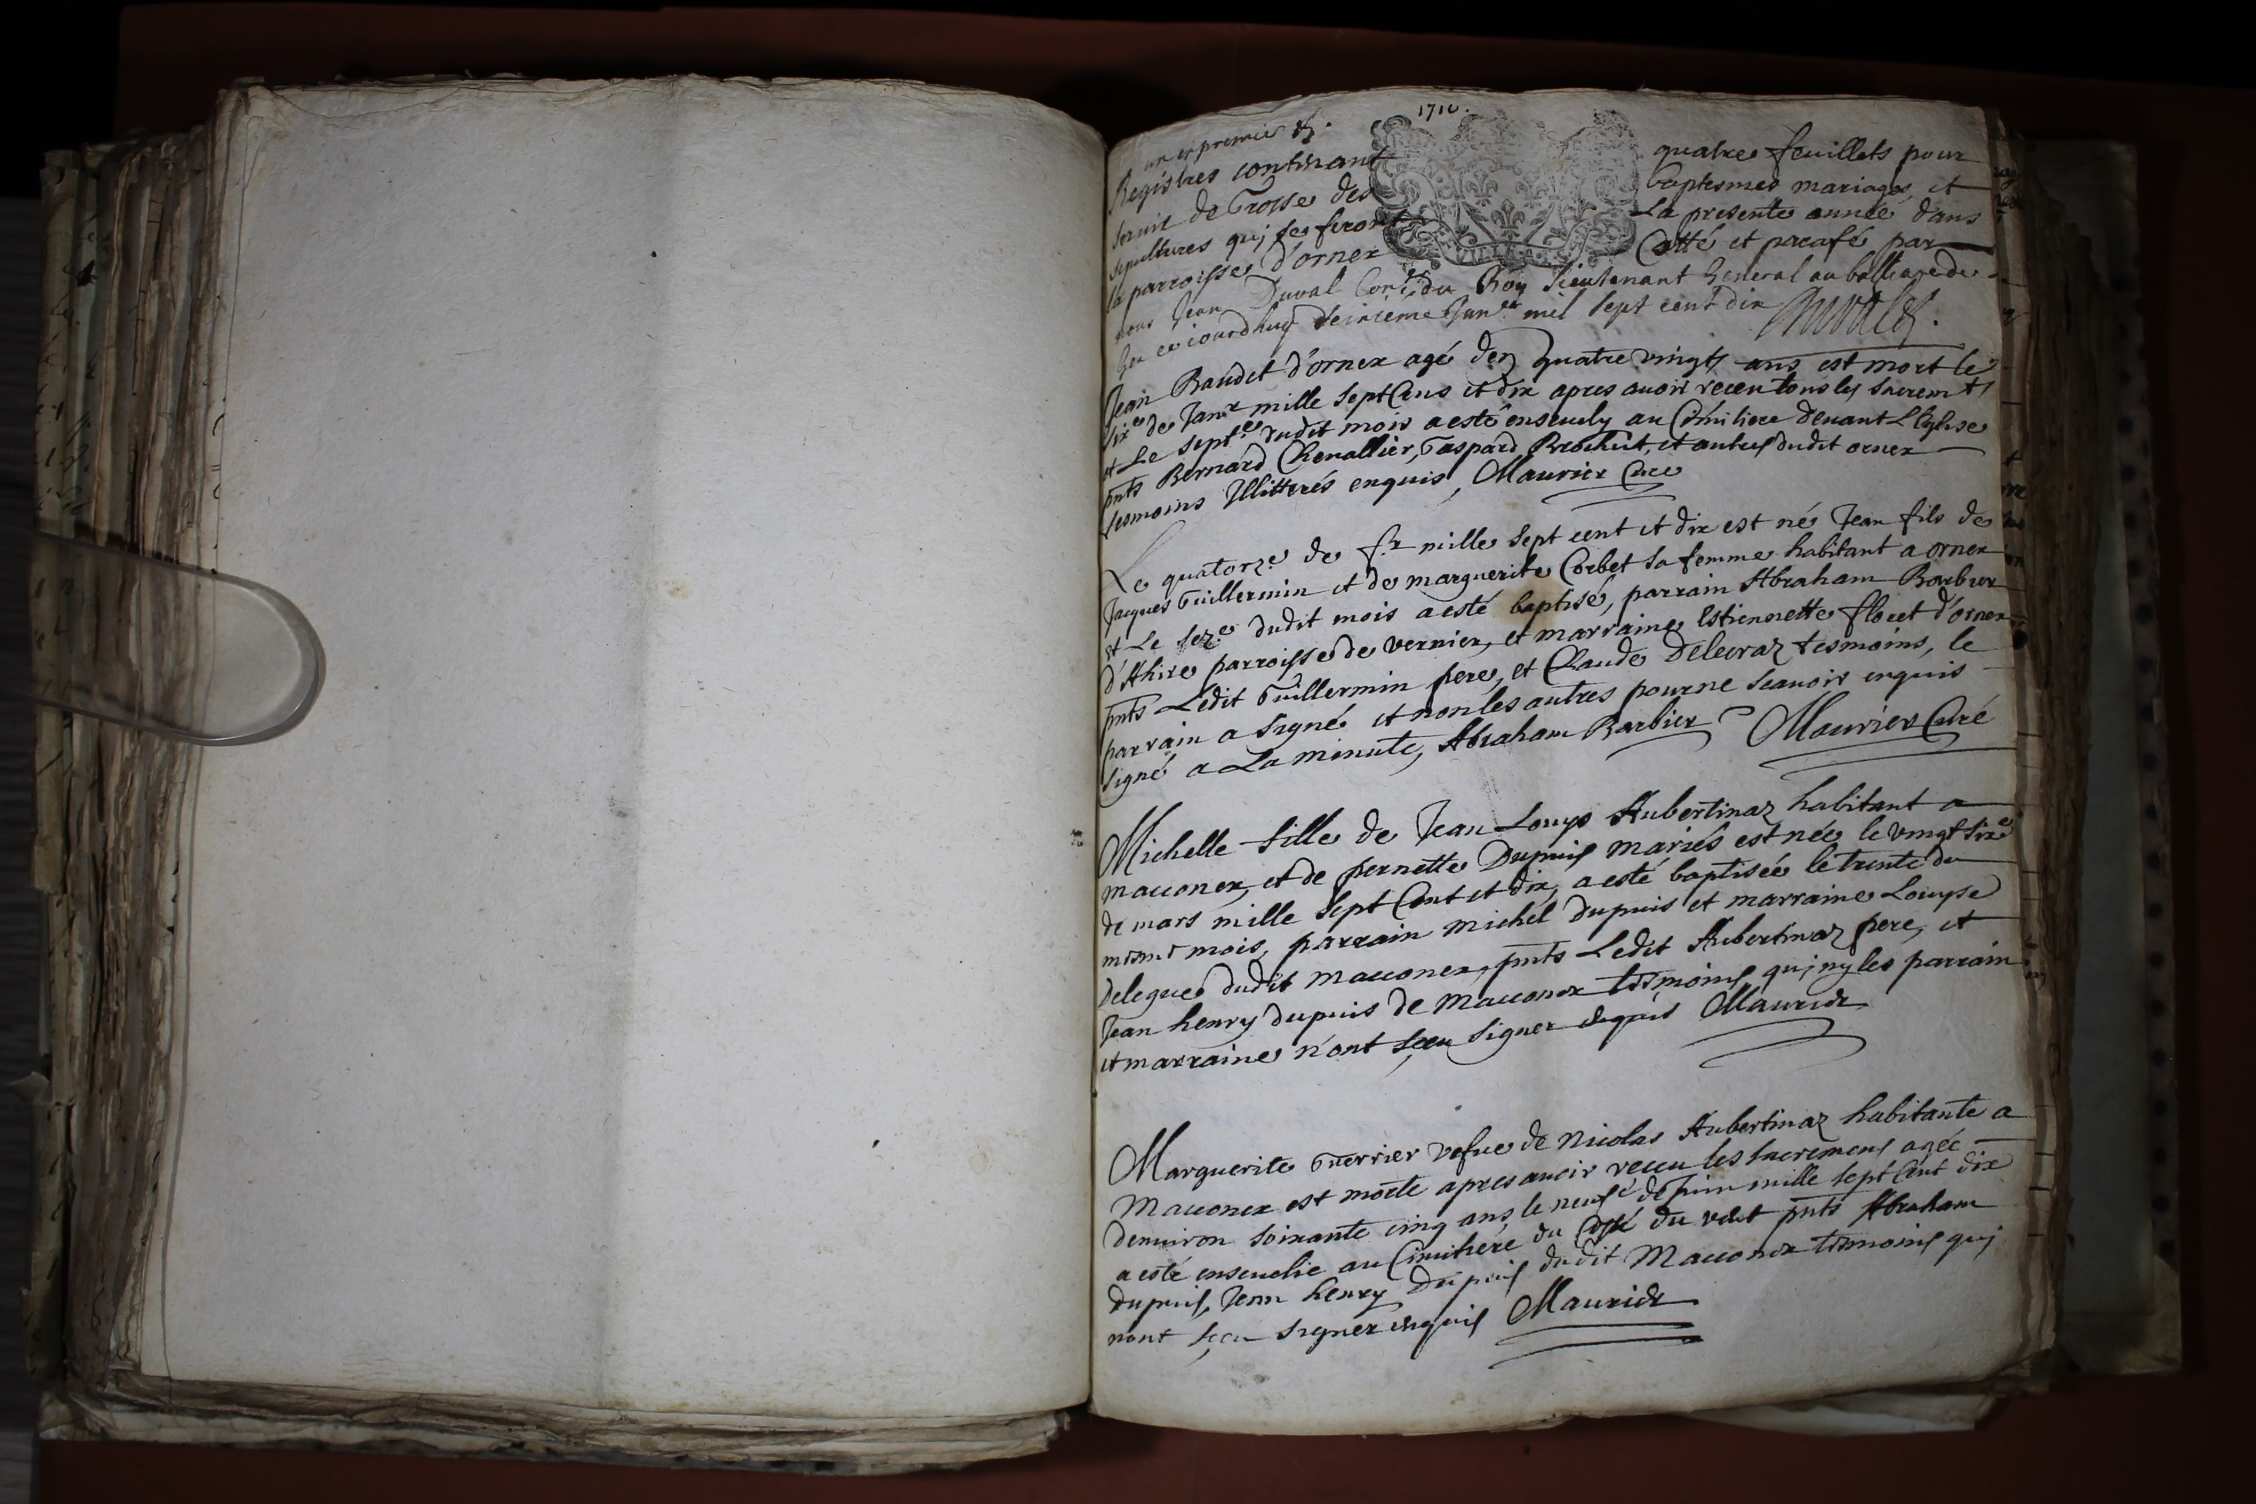 1710.
un et premier
Registres contenant quatre feuillets pour
seruir de Grosse des baptesmes mariages et
sepultures qui se feront La presente année dans
la parroisse d'ornex Cotté et parafé par
nous Jean Duval Con.er du Roy Lieutenant General au balliage de
Gex ce jourdhuy seizième Jan.er mil sept cent dix Duval
Jean Baudet d'ornex agé de quatre vingts ans est mort le
six.e de Janv.r mille sept Cens et dix apres auoir receu tous les sacrem.ts
et Le sept.e dudit mois a esté enseuely au Cimitiere deuant L'Eglise
pnts Bernard Cheuallier, Gaspard Brochut, et autres dudit ornex
tesmoins Illitterés enquis, Maurier Curé
Le quatorz.e de f.r mille sept cent et dix est né Jean fils de
Jacques Guillermin et de marguerite Corbet sa femme habitant a ornex
et Le sez.e dudit mois a esté baptisé, parrain Abraham Barbier
d'Ahire parroisse de vernier, et marraine Estiennette floret d'ornex
pnts Ledit Guillermin pere, et Claude Delecraz tesmoins, le
parrain a signé et non les autres pour ne scauoir enquis
signé a La minute, Abraham Barbier Maurier Curé
Michelle fille de Jean Louys Aubertinaz habitant a
maconex, et de pernette Dupuis mariés est née le vingt six.e
de mars mille sept Cent et dix, a esté baptisée le trente du
mesme mois, parrain michel Dupuis et marraine Louyse
Delegue dudit maconex, pnts Ledit Aubertinaz pere, et
Jean henry dupuis de Maconex tesmoins qui ny les parrain
et marraine n'ont sçeu signer enquis Maurier
Marguerite Guerrier vefue de Nicolas Aubertinaz habitante a
Maconex est morte apres auoir receu les sacremens agée
denuiron soixante cinq ans le neuf.e de Juin mille sept Cent dix
a esté enseuelie au Cimitiere du Costé du vent pnts Abraham
dupuis, Jean henry Dupuis dudit Maconex tesmoins qui
n'ont sçeu signer enquis Maurier